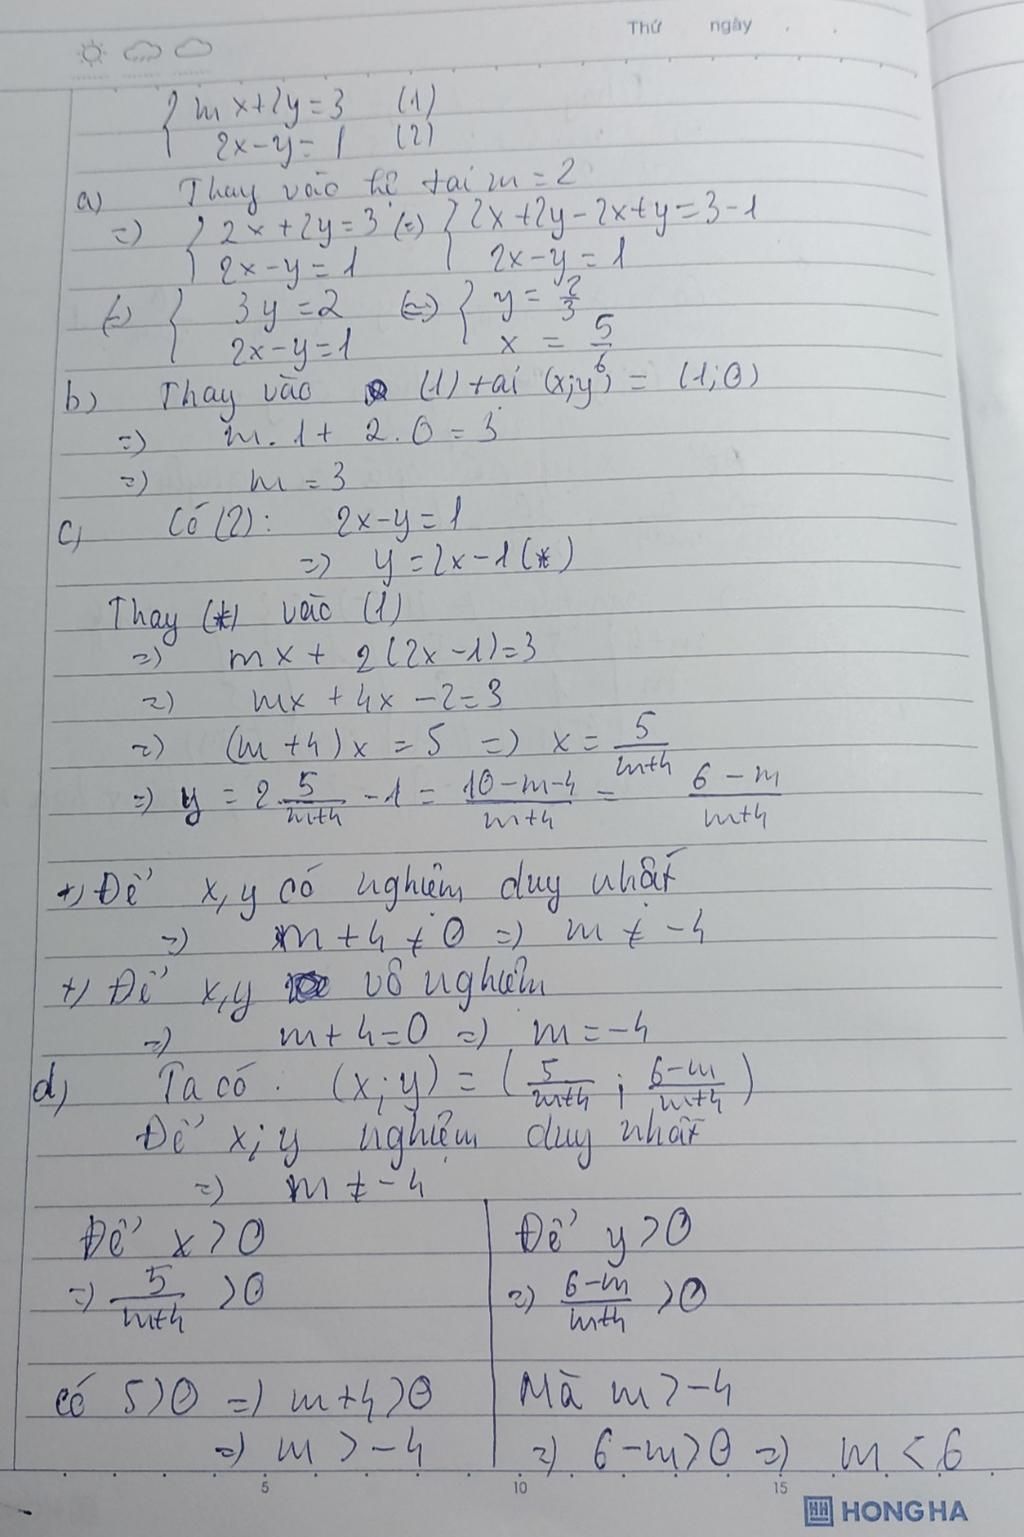 Thứ ngày . .
{ mx+2y=3 (1)
2x-y=1 (2)
a) Thay vào hệ tại m=2
=) { 2x+2y=3 (=) { 2x+2y-2x+y=3-1
2x-y=1 2x-y=1
(=) { 3y=2 (=) { y=2/3
2x-y=1 x=5/6
b) Thay vào (1) tại (x;y) = (1;0)
=) m.1+ 2.0=3
=) m=3
c, Có (2): 2x-y=1
=) y=2x-1(*)
Thay (*) vào (1)
=) mx+ 2(2x-1)=3
=) mx+4x-2=3
=) (m+4)x=5 =) x=5/(m+4)
=) y=2 5/(m+4) -1 = (10-m-4)/(m+4) = (6-m)/(m+4)
+) Để x,y có nghiệm duy nhất
=) m+4≠0 =) m≠-4
+) Để x,y vô nghiệm
=) m+4=0 =) m=-4
d) Ta có: (x;y) = (5/(m+4); (6-m)/(m+4))
Để x;y nghiệm duy nhất
=) m≠-4
Để x>0 Để y>0
=) 5/(m+4) >0 =) (6-m)/(m+4) >0
Có 5>0 =) m+4>0 Mà m>-4
=) m>-4 =) 6-m>0 =) m<6
5 10 15
HH HONG HA